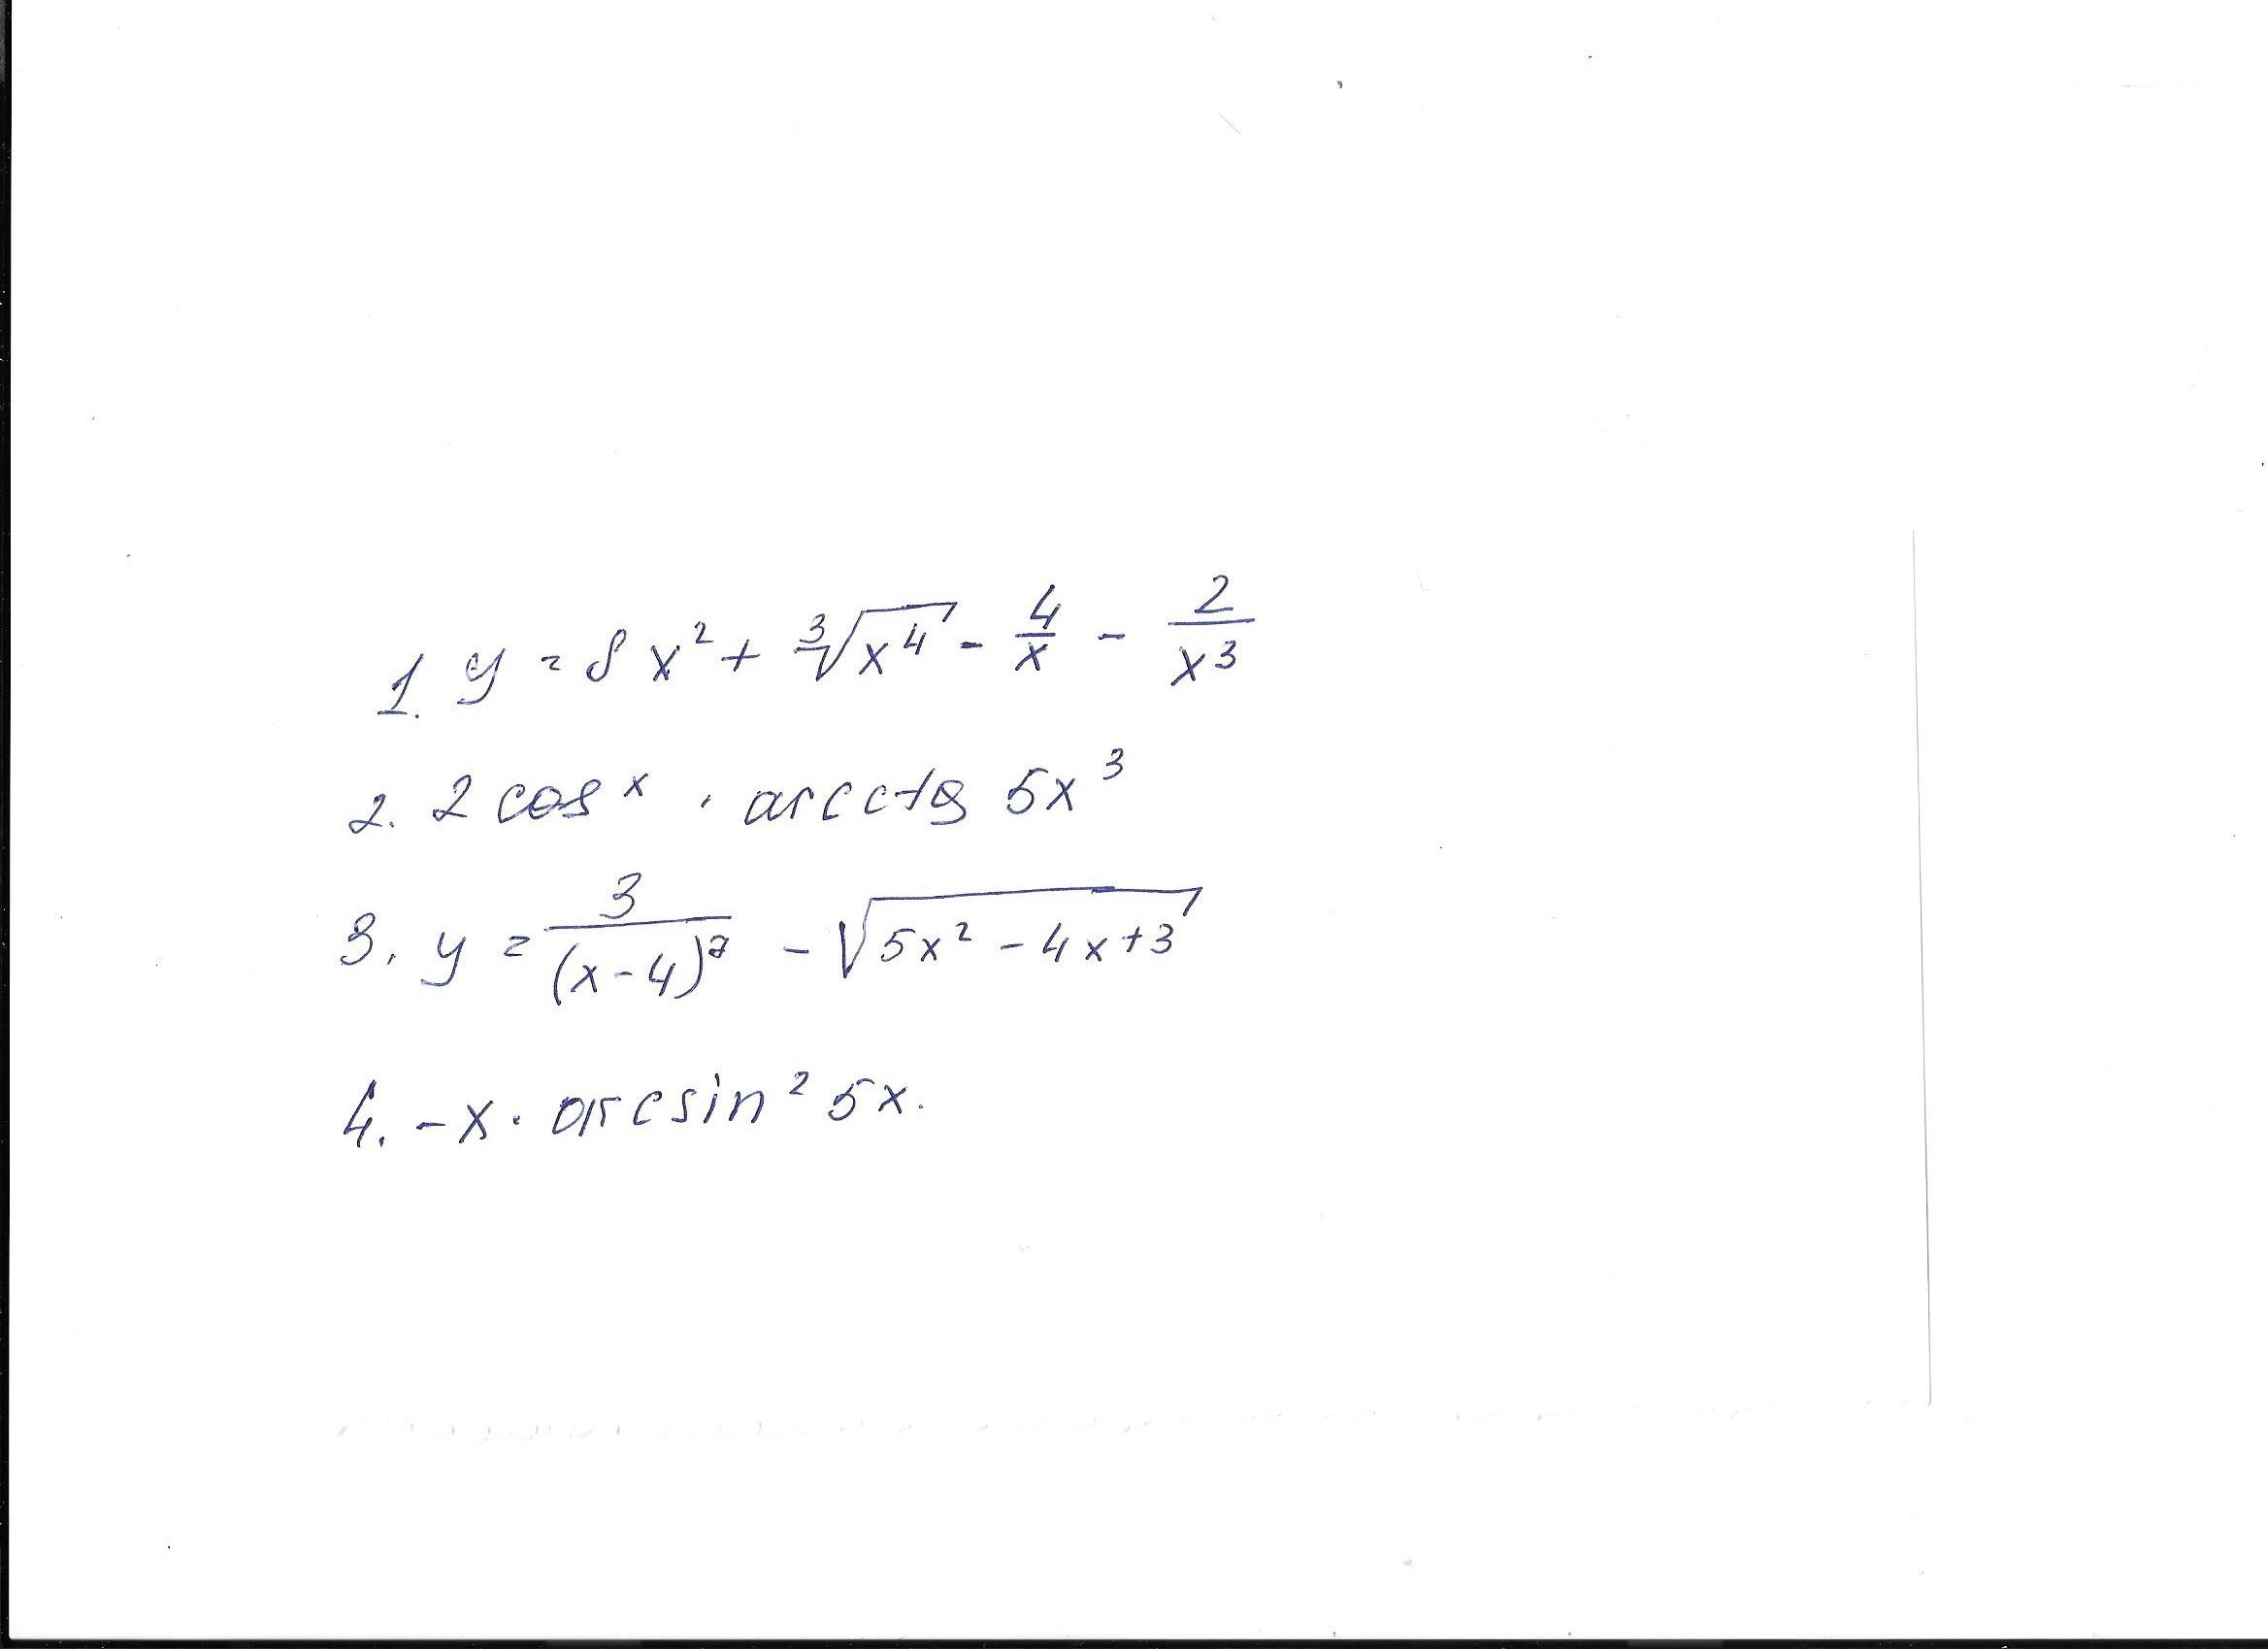 1. y = 8x² + ∛x⁴ - 4/x - 2/x³
2. 2 cos ˣ · arcctg 5x³
3. y = 3/(x-4)⁷ - √5x² - 4x+3
4. -x · arcsin² 5x.